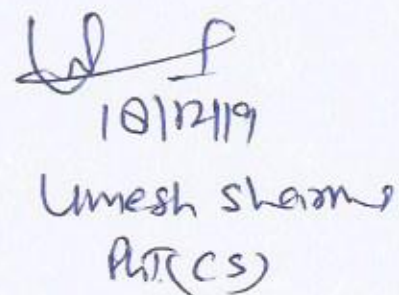 18/12/19
Umesh Sharma
PGT(CS)